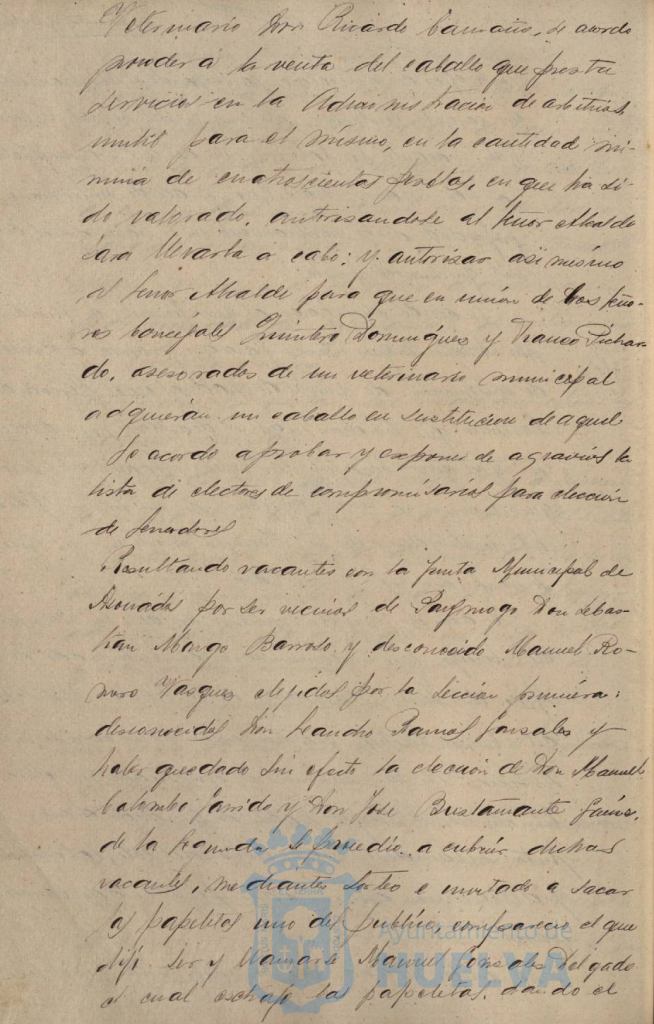 Veterinario Don Ricardo Camaño, se acordo
proceder á la venta del caballo que presta
servicios en la Administracion de arbitrios
inutil para el mismo, en la cantidad mi-
nima de cuatroscientas pesetas, en que ha si-
do valorado, autorisandose al Señor Alcalde
para llevarla á cabo; y autorisar asi mismo
al Señor Alcalde para que en union de los Seño-
res Concejales Quintero Dominguez y Franco Pichar-
do, asesorados de un veterinario municipal
adquieran un caballo en sustitucion de aquel
Se acordo aprobar y exponer de agravios la
lista de electores de compromisarios para eleccion
de Senadores
Resultando vacantes en la Junta Municipal de
Asociados por ser vecinos de Paymogo Don Sebas-
tian Margo Barroso y desconocido Manuel Ro-
mero Vasquez elejidos por la seccion primera;
desconocidos Don Leandro Ramos Gonsales y
haber quedado sin efecto la eleccion de Don Manuel
Garrido y Don Jose Bustamante
de la segunda se procedio a cubrir dichas
vacantes, mediantes sorteo e invitado a sacar
las papeletas uno del publico, comparecio el que
dijo ser y llamarse Manuel Gonsales Delgado
el cual las papeletas, dando el
Ayuntamiento de
HUELVA